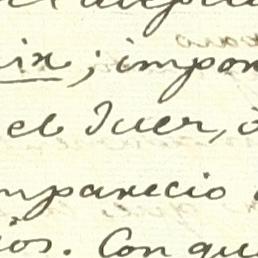 ix; impon
el Juer,
mparecio
ios. Con que